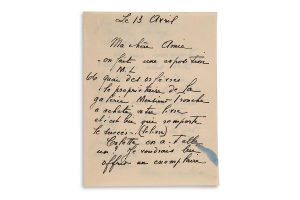 Le 13 Avril
Ma chère Amie
on fait une exposition
M. L.
66 quai des orfèvres
le propriétaire de la
galerie Monsieur
a acheté votre livre
et c'est bien que remporte
le succès.
Colette en a-t-elle
un? Je voudrais lui
offrir un exemplaire